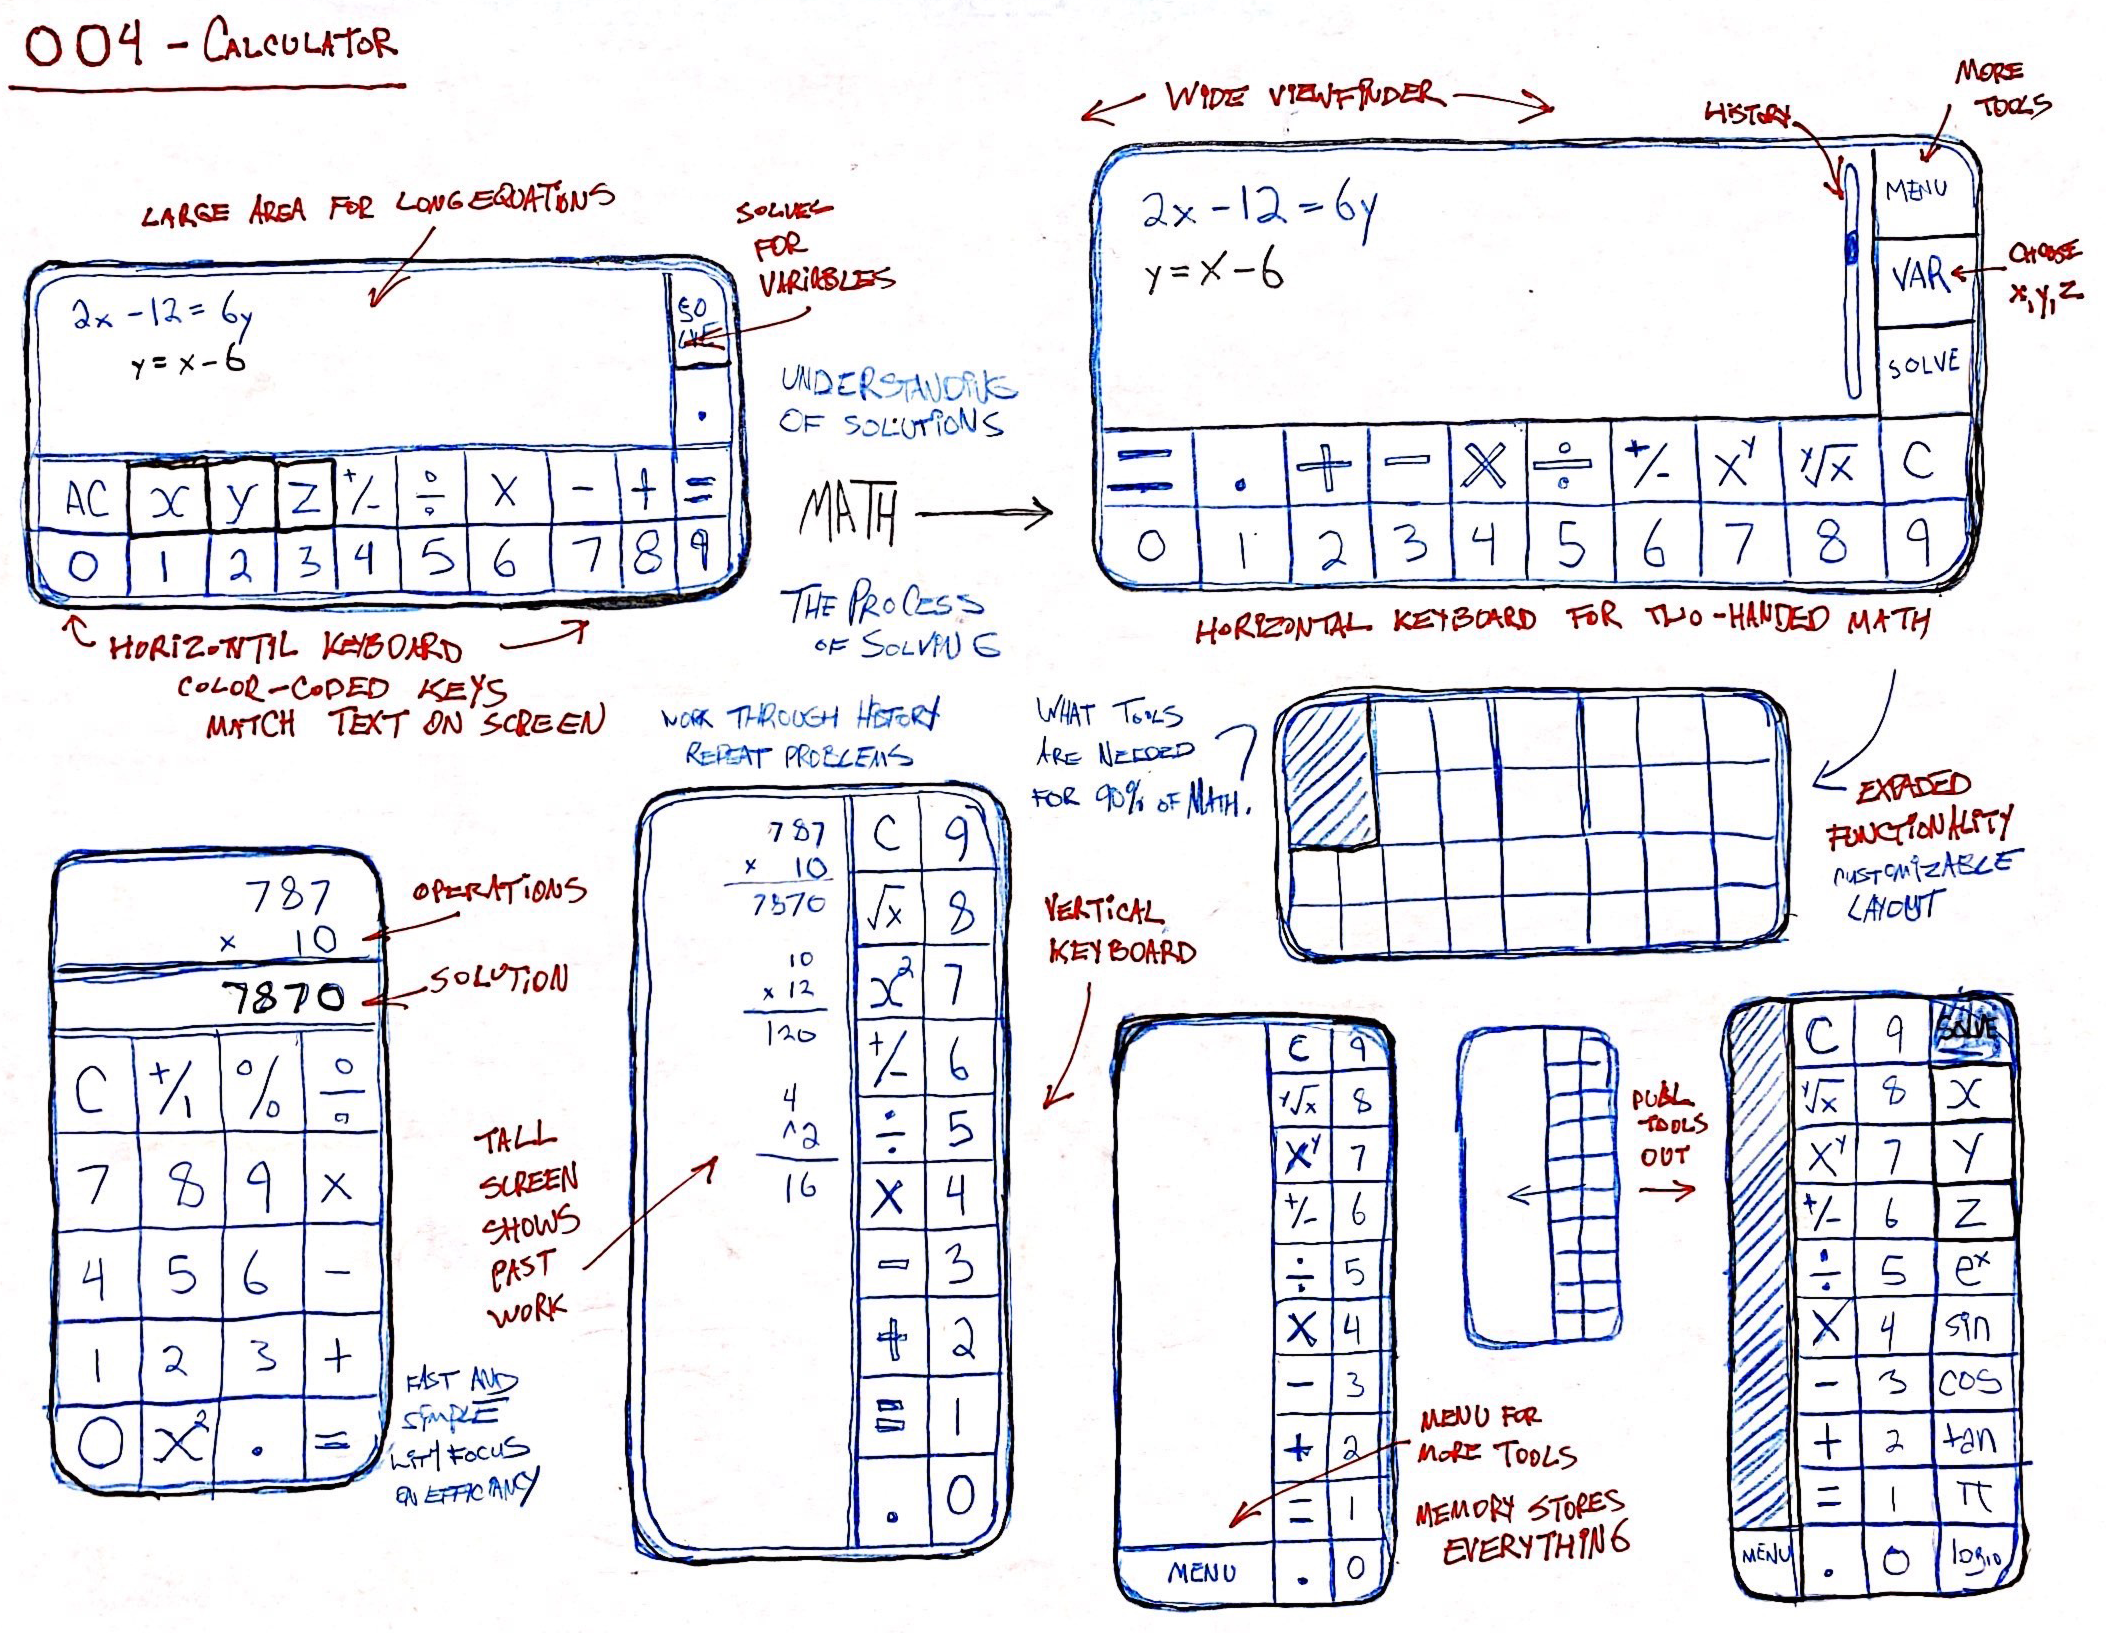 004 - CALCULATOR
LARGE AREA FOR LONG EQUATIONS
SOLVES
FOR
VARIABLES
2x - 12 = 6y
y = x - 6
SO
LVE
.
AC x y z +/- ÷ x - + =
0 1 2 3 4 5 6 7 8 9
HORIZONTAL KEYBOARD
COLOR-CODED KEYS
MATCH TEXT ON SCREEN
UNDERSTANDING
OF SOLUTIONS
MATH
THE PROCESS
OF SOLVING
WIDE VIEWFINDER
HISTORY
MORE
TOOLS
2x - 12 = 6y
y = x - 6
MENU
VAR
SOLVE
CHOOSE
X, Y, Z
= . + - X ÷ +/- X^Y Y√X C
0 1 2 3 4 5 6 7 8 9
HORIZONTAL KEYBOARD FOR TWO-HANDED MATH
WHAT TOOLS
ARE NEEDED
FOR 90% OF MATH?
EXPADED
FUNCTIONALITY
CUSTOMIZABLE
LAYOUT
787
x 10
7870
OPERATIONS
SOLUTION
C +/- % ÷
7 8 9 x
4 5 6 -
1 2 3 +
0 x² . =
FAST AND
SIMPLE
WITH FOCUS
ON EFFICIANCY
WORK THROUGH HISTORY
REPEAT PROBLEMS
787
x 10
7870
10
x 12
120
4
^2
16
C 9
√x 8
x² 7
+/- 6
÷ 5
X 4
- 3
+ 2
= 1
. 0
TALL
SCREEN
SHOWS
PAST
WORK
VERTICAL
KEYBOARD
C 9
Y√X 8
X^Y 7
+/- 6
÷ 5
X 4
- 3
+ 2
= 1
MENU . 0
MENU FOR
MORE TOOLS
MEMORY STORES
EVERYTHING
PULL
TOOLS
OUT
C 9 SOLVE
Y√X 8 X
X^Y 7 Y
+/- 6 Z
÷ 5 e^x
X 4 sin
- 3 cos
+ 2 tan
= 1 π
MENU . 0 log10